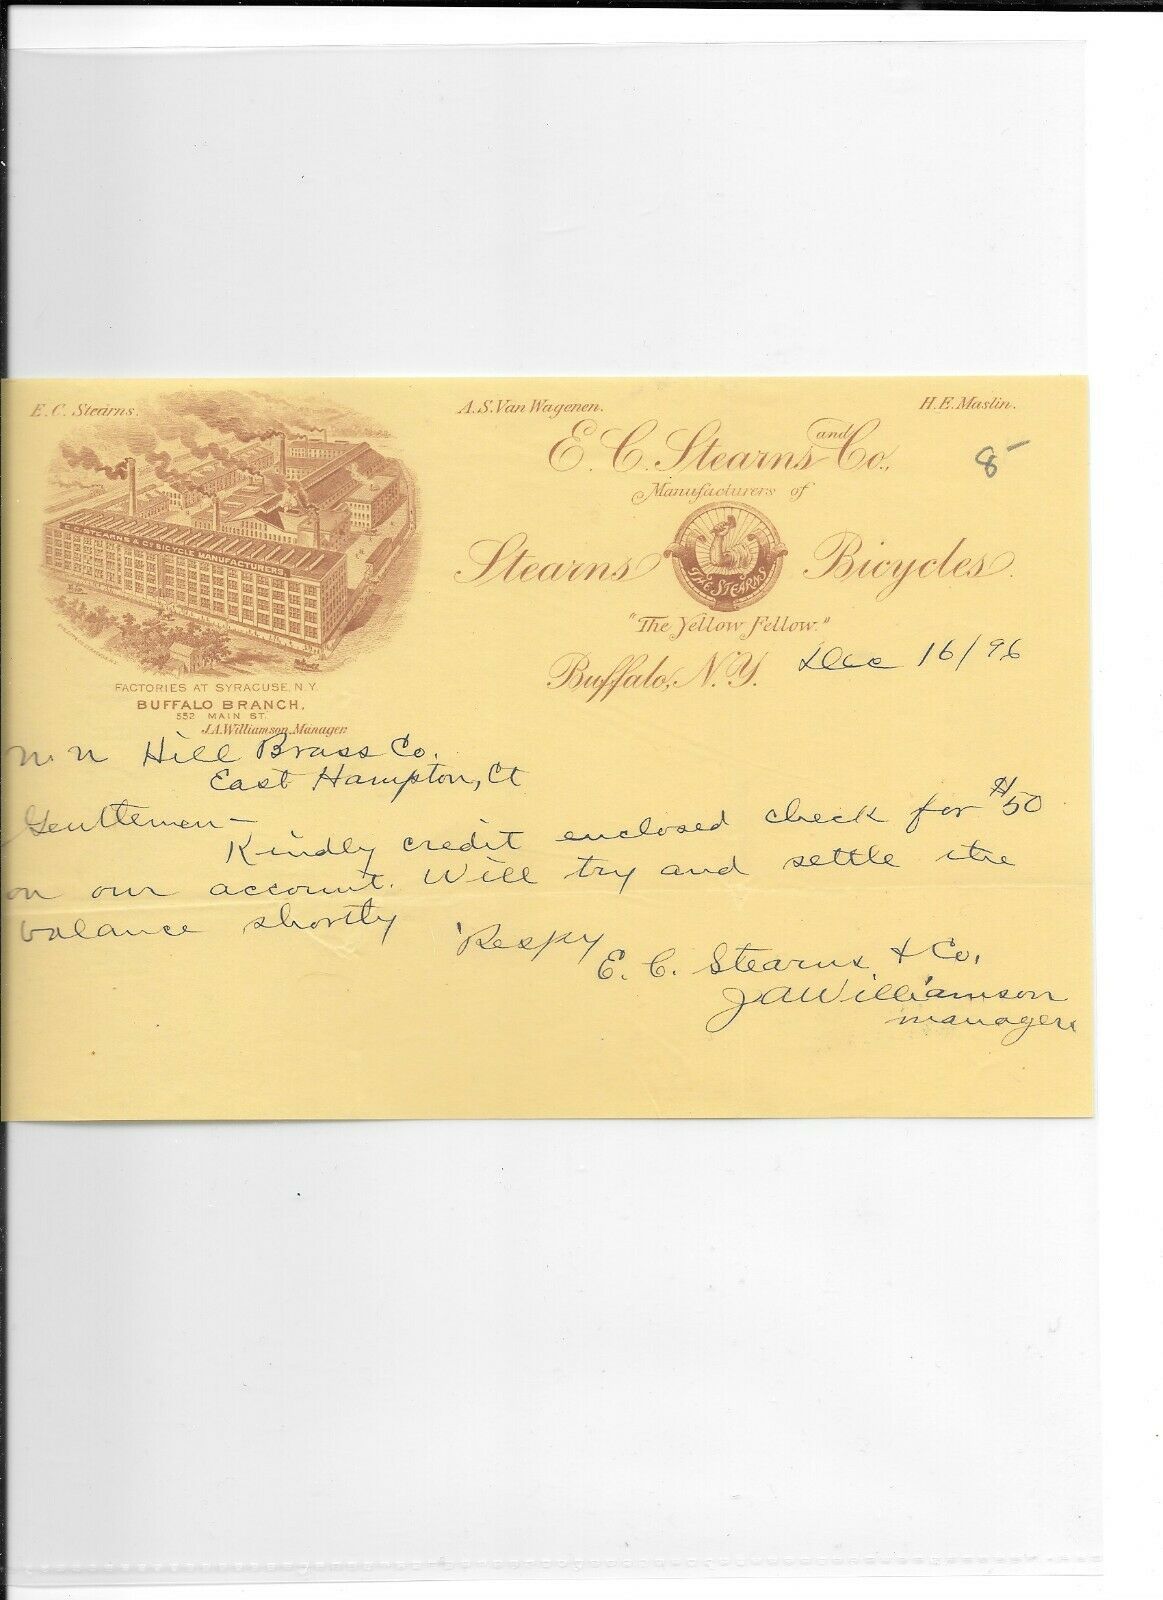 E. C. Stearns.
A. S. Van Wagenen.
H. E. Maslin.
E. C. Stearns and Co.,
8-
Manufacturers of
Stearns Bicycles.
THE STEARNS
"The Yellow Fellow."
E. C. STEARNS & CO. BICYCLE MANUFACTURERS
FACTORIES AT SYRACUSE, N.Y.
BUFFALO BRANCH,
552 MAIN ST.
J.A. Williamson, Manager
Buffalo, N. Y. Dec 16/96
N. N Hill Brass Co.
East Hampton, Ct
Gentlemen –
Kindly credit enclosed check for $50
on our account. Will try and settle the
balance shortly
Respy
E. C. Stearns & Co.
J A Williamson
manager